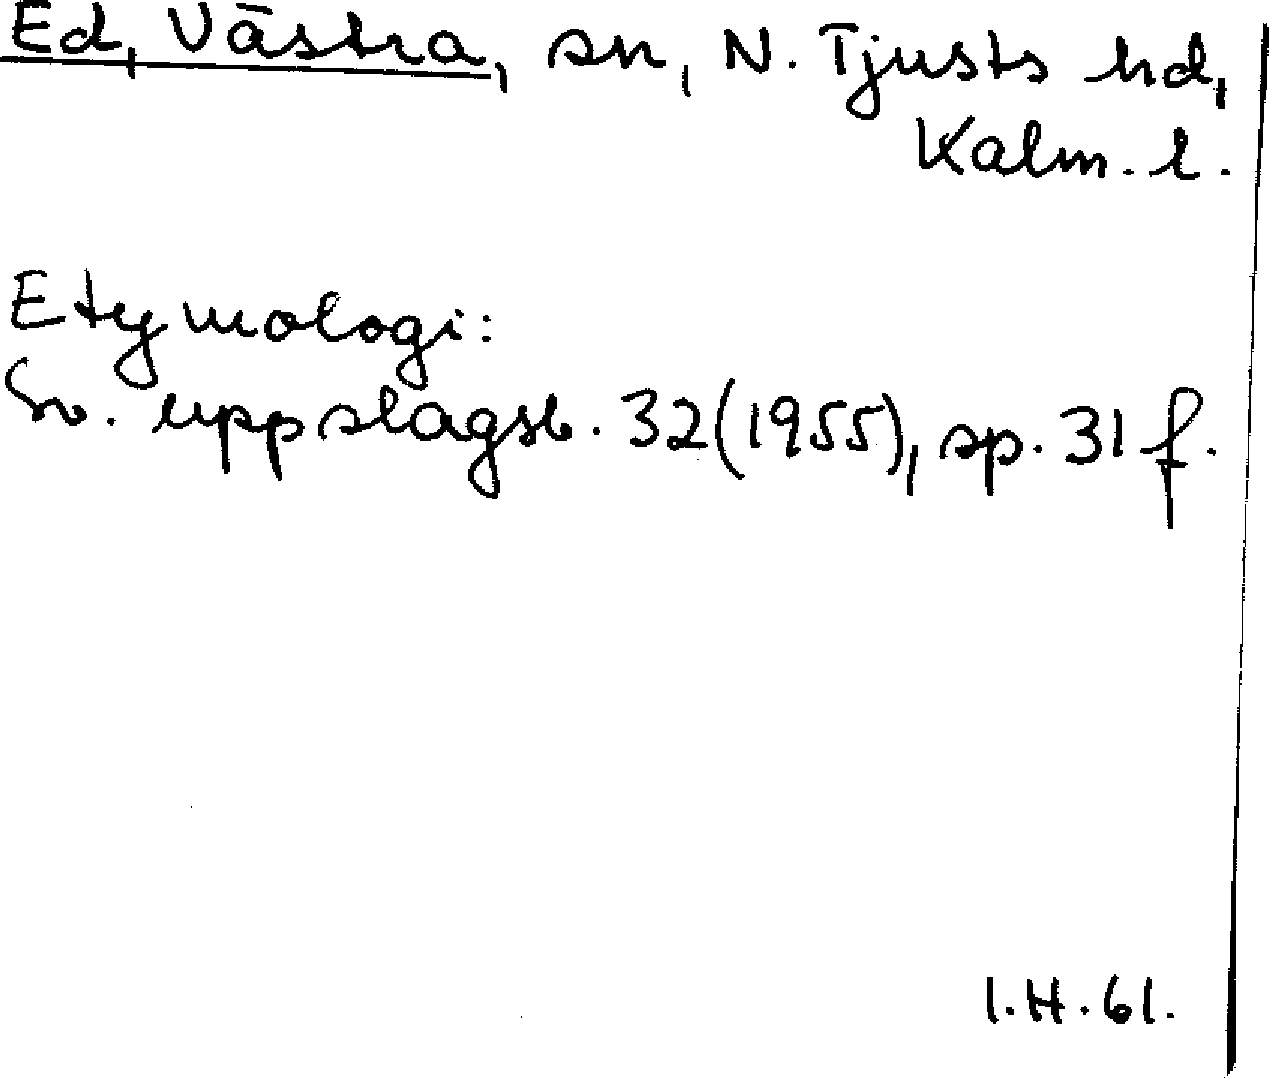 Ed, Västra, sn, N. Tjusts hd,
Kalm. l.
Etymologi:
Sv. uppslagsb. 32(1955), sp. 31 f.
I.H. 61.